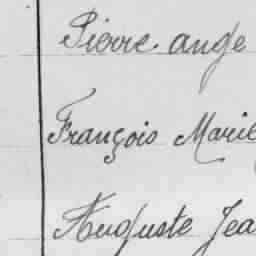 Pierre ange
François Marie
Auguste Jea